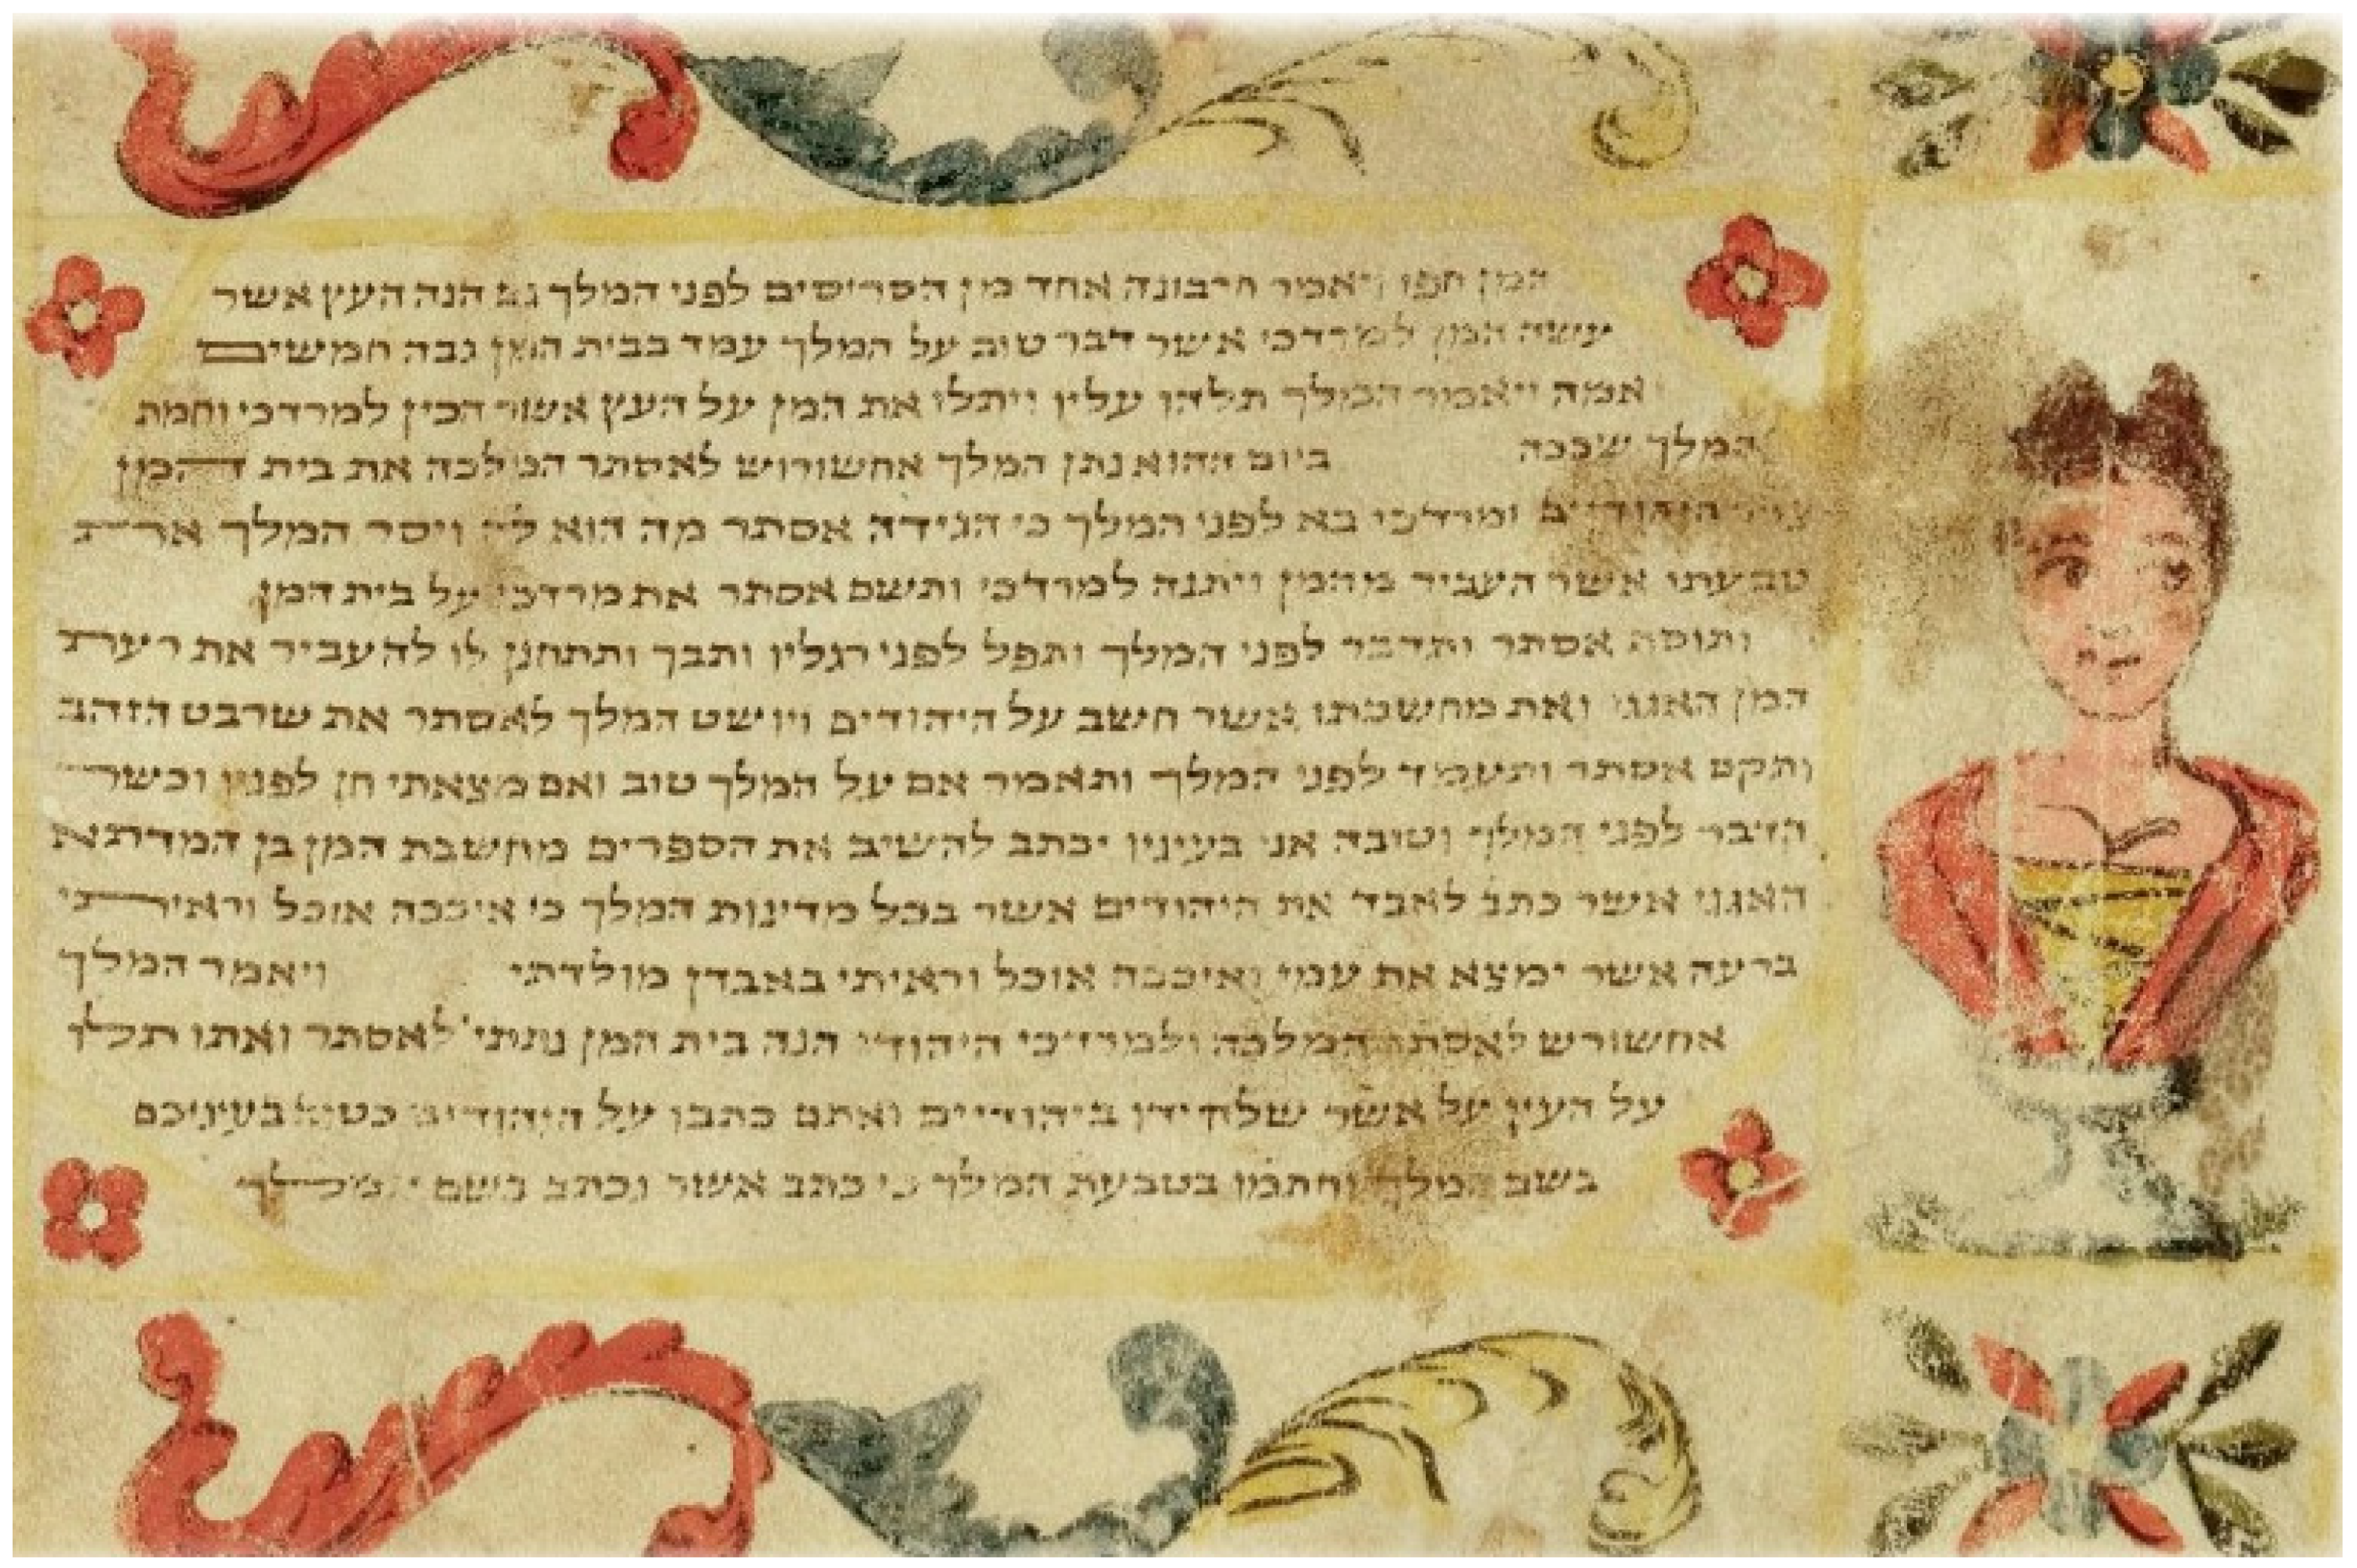 המן חפו ויאמר חרבונה אחד מן הסריסים לפני המלך גם הנה העץ אשר
עשה המן למרדכי אשר דבר טוב על המלך עמד בבית המן גבה חמשים
אמה ויאמר המלך תלהו עליו ויתלו את המן על העץ אשר הכין למרדכי וחמת
המלך שככה ביום ההוא נתן המלך אחשורוש לאסתר המלכה את בית המן
צרר היהודיים ומרדכי בא לפני המלך כי הגידה אסתר מה הוא לה ויסר המלך את
טבעתו אשר העביר מהמן ויתנה למרדכי ותשם אסתר את מרדכי על בית המן
ותוסף אסתר ותדבר לפני המלך ותפל לפני רגליו ותבך ותתחנן לו להעביר את רעת
המן האגגי ואת מחשבתו אשר חשב על היהודים ויושט המלך לאסתר את שרבט הזהב
ותקם אסתר ותעמד לפני המלך ותאמר אם על המלך טוב ואם מצאתי חן לפניו וכשר
הדבר לפני המלך וטובה אני בעיניו יכתב להשיב את הספרים מחשבת המן בן המדתא
האגגי אשר כתב לאבד את היהודים אשר בכל מדינות המלך כי איככה אוכל וראיתי
ברעה אשר ימצא את עמי ואיככה אוכל וראיתי באבדן מולדתי ויאמר המלך
אחשורש לאסתר המלכה ולמרדכי היהודי הנה בית המן נתתי לאסתר ואתו תלו
על העץ על אשר שלח ידו ביהודיים ואתם כתבו על היהודים כטוב בעיניכם
בשם המלך וחתמו בטבעת המלך כי כתב אשר נכתב בשם המלך